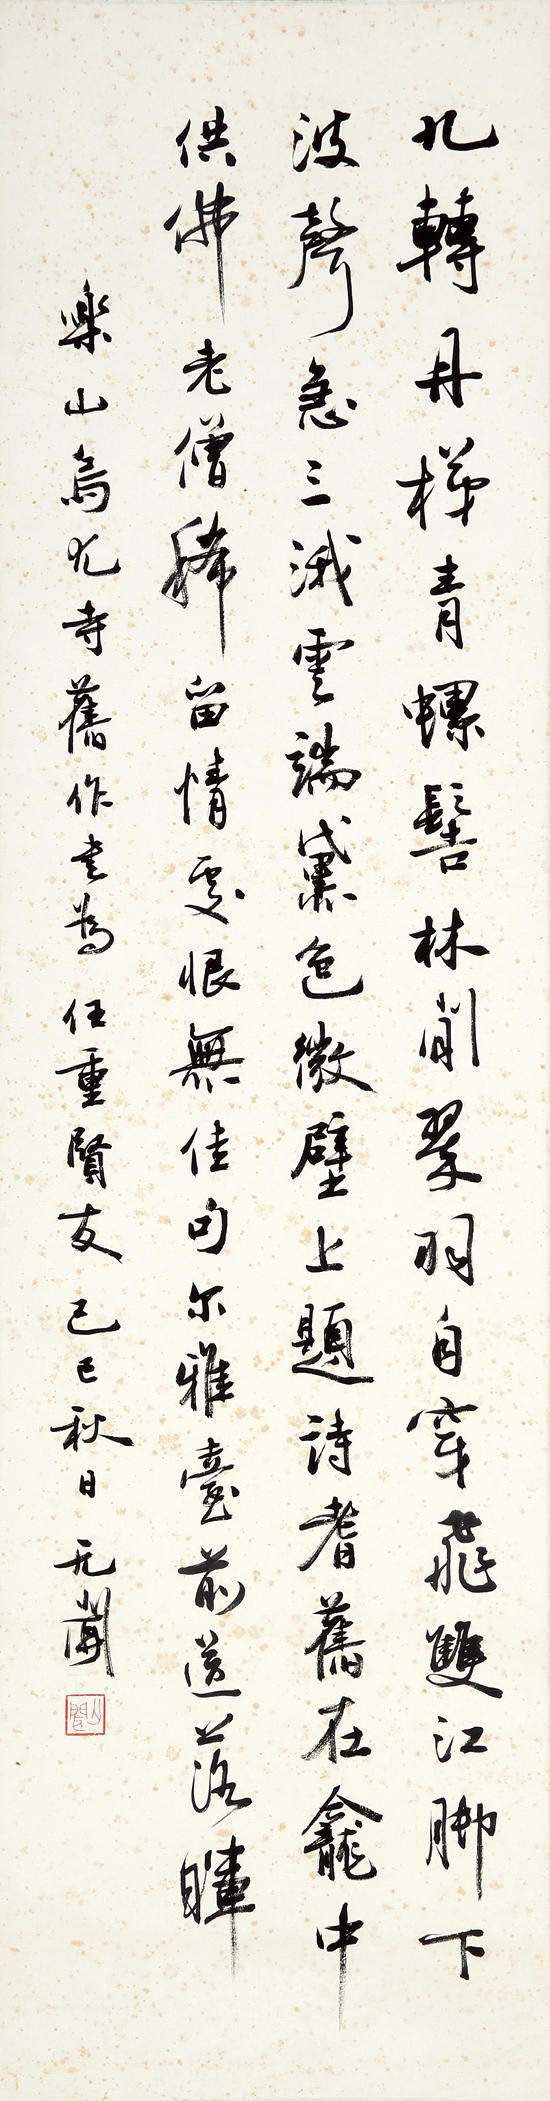 九轉丹梯青螺髻林間翠羽自穿飛雙江腳下
波聲急三峨雲端黛色微壁上題詩耆舊在龕中
供佛老僧稀留情處恨無佳句尔雅臺前送落暉
樂山烏尤寺舊作書為任重賢友己巳秋日无聞